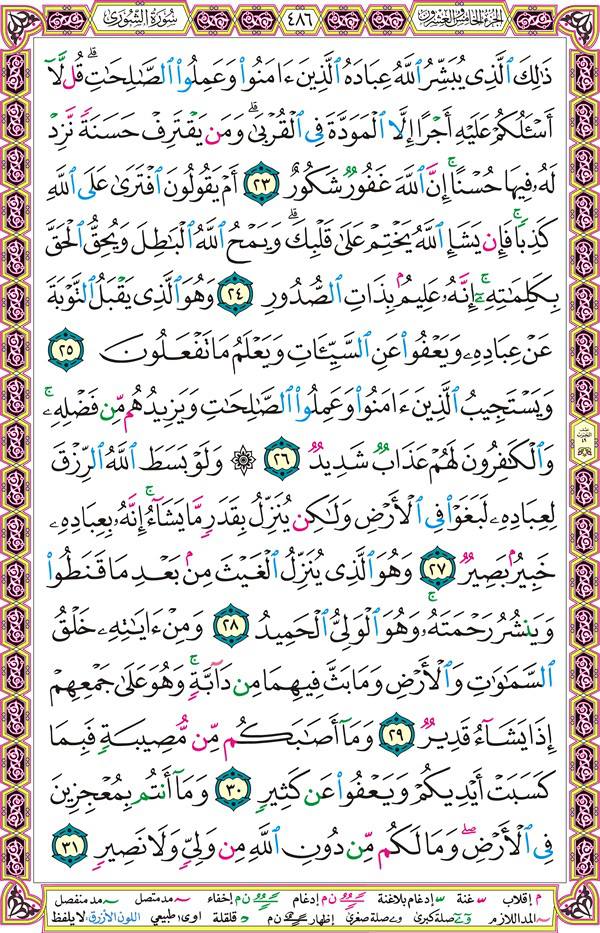 الجزء الخامس والعشرون ٤٨٦ سورة الشورى
ذَٰلِكَ ٱلَّذِى يُبَشِّرُ ٱللَّهُ عِبَادَهُ ٱلَّذِينَ ءَامَنُوا۟ وَعَمِلُوا۟ ٱلصَّٰلِحَٰتِ ۗ قُل لَّآ
أَسْـَٔلُكُمْ عَلَيْهِ أَجْرًا إِلَّا ٱلْمَوَدَّةَ فِى ٱلْقُرْبَىٰ ۗ وَمَن يَقْتَرِفْ حَسَنَةً نَّزِدْ
لَهُۥ فِيهَا حُسْنًا ۚ إِنَّ ٱللَّهَ غَفُورٌ شَكُورٌ ٢٣ أَمْ يَقُولُونَ ٱفْتَرَىٰ عَلَى ٱللَّهِ
كَذِبًا ۖ فَإِن يَشَإِ ٱللَّهُ يَخْتِمْ عَلَىٰ قَلْبِكَ ۗ وَيَمْحُ ٱللَّهُ ٱلْبَٰطِلَ وَيُحِقُّ ٱلْحَقَّ
بِكَلِمَٰتِهِۦٓ ۚ إِنَّهُۥ عَلِيمٌۢ بِذَاتِ ٱلصُّدُورِ ٢٤ وَهُوَ ٱلَّذِى يَقْبَلُ ٱلتَّوْبَةَ
عَنْ عِبَادِهِۦ وَيَعْفُوا۟ عَنِ ٱلسَّيِّـَٔاتِ وَيَعْلَمُ مَا تَفْعَلُونَ ٢٥
وَيَسْتَجِيبُ ٱلَّذِينَ ءَامَنُوا۟ وَعَمِلُوا۟ ٱلصَّٰلِحَٰتِ وَيَزِيدُهُم مِّن فَضْلِهِۦ ۚ
وَٱلْكَٰفِرُونَ لَهُمْ عَذَابٌ شَدِيدٌ ٢٦ ۞ وَلَوْ بَسَطَ ٱللَّهُ ٱلرِّزْقَ
لِعِبَادِهِۦ لَبَغَوْا۟ فِى ٱلْأَرْضِ وَلَٰكِن يُنَزِّلُ بِقَدَرٍ مَّا يَشَآءُ ۚ إِنَّهُۥ بِعِبَادِهِۦ
خَبِيرٌۢ بَصِيرٌ ٢٧ وَهُوَ ٱلَّذِى يُنَزِّلُ ٱلْغَيْثَ مِنۢ بَعْدِ مَا قَنَطُوا۟
وَيَنشُرُ رَحْمَتَهُۥ ۚ وَهُوَ ٱلْوَلِىُّ ٱلْحَمِيدُ ٢٨ وَمِنْ ءَايَٰتِهِۦ خَلْقُ
ٱلسَّمَٰوَٰتِ وَٱلْأَرْضِ وَمَا بَثَّ فِيهِمَا مِن دَآبَّةٍ ۚ وَهُوَ عَلَىٰ جَمْعِهِمْ
إِذَا يَشَآءُ قَدِيرٌ ٢٩ وَمَآ أَصَٰبَكُم مِّن مُّصِيبَةٍ فَبِمَا
كَسَبَتْ أَيْدِيكُمْ وَيَعْفُوا۟ عَن كَثِيرٍ ٣٠ وَمَآ أَنتُم بِمُعْجِزِينَ
فِى ٱلْأَرْضِ ۖ وَمَا لَكُم مِّن دُونِ ٱللَّهِ مِن وَلِىٍّ وَلَا نَصِيرٍ ٣١
م إقلاب غنة إدغام بلاغنة ن م إدغام إخفاء مد متصل مد منفصل
المد اللازم صلة كبرى صلة صغرى إظهار ن م قلقلة اوى؛ طبيعي اللون الأزرق؛ لا يلفظ